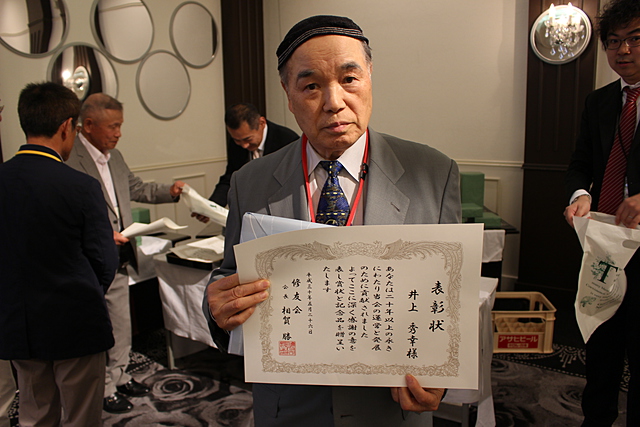 表彰状
井上 秀幸様
あなたは二十年以上の永き
にわたり当会の運営と発展
のために貢献されました
よってここに深く感謝の意を
表し賞状と記念品を贈呈い
たします
平成三十年五月二十六日
修友会
会長 相賀 勝
アサヒビール
T